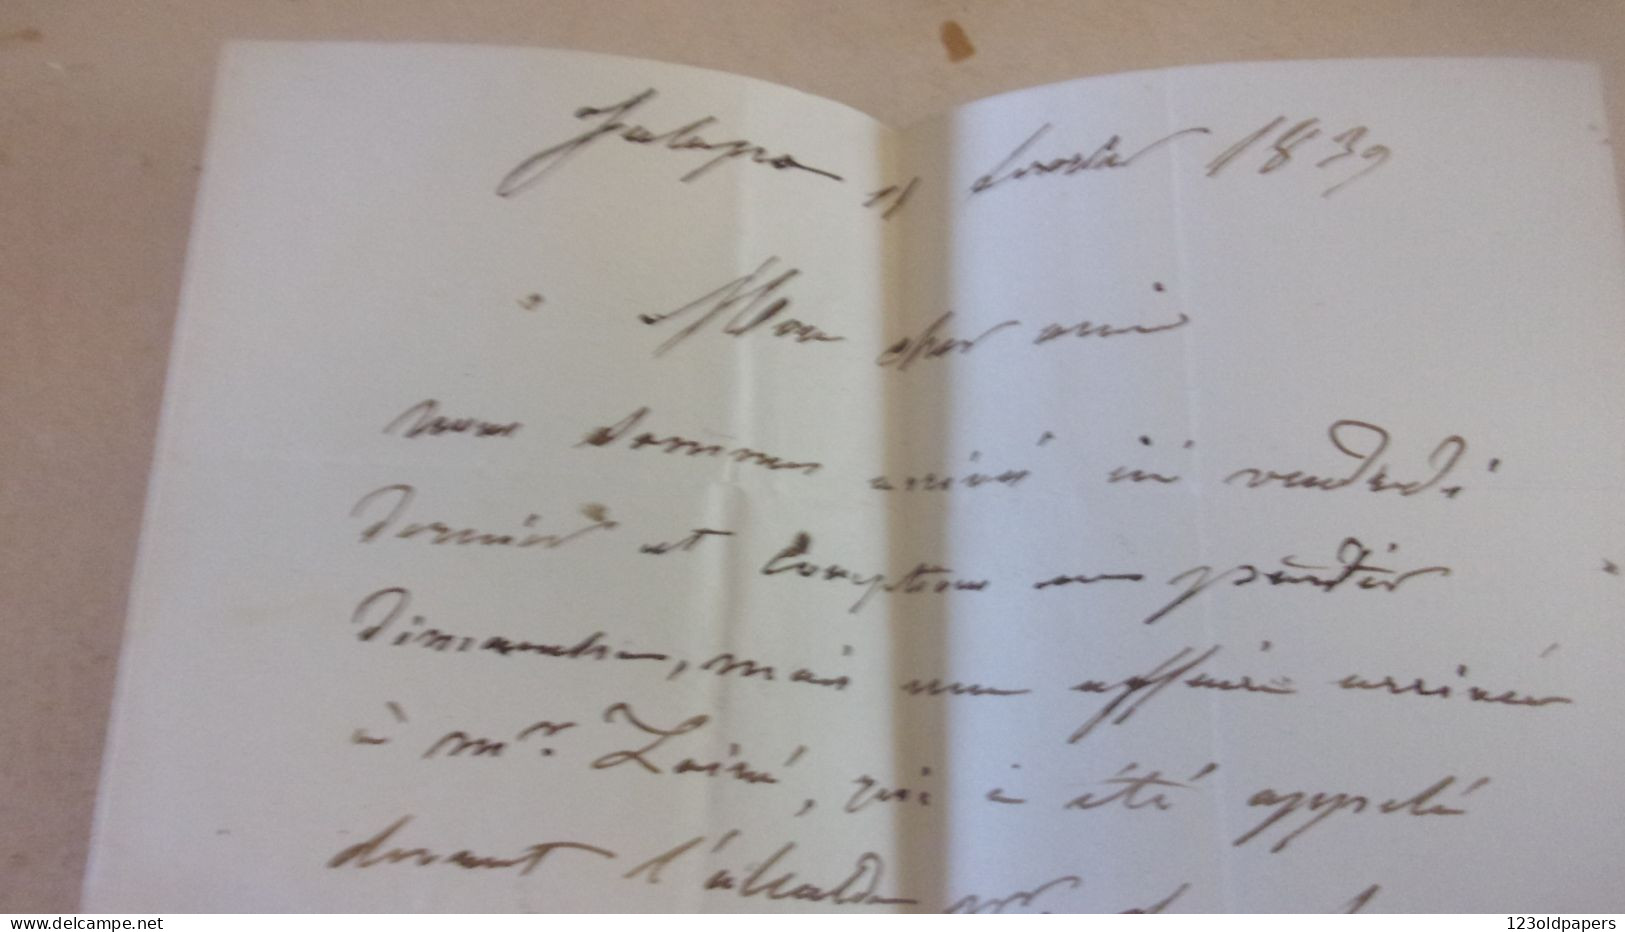 Jalapa 11 1839
Mon cher ami
nous sommes arrivé ici vendredi
dernier et comptions en partir
dimanche, mais une affaire arrivée
à mr. Lainé, qui à été appelé
devant l'alcalde
delcampe.net
123oldpapers